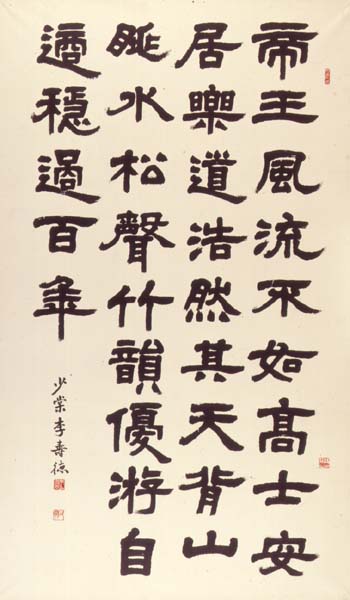 帝王風流不如高士安
居樂道浩然其天背山
眺水松聲竹韻優游自
適穩過百年
少棠李壽德